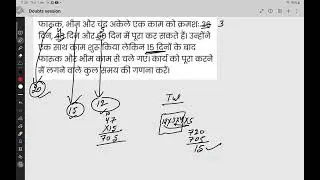 Doubts session
फारूक, भीम और चंद्र अकेले एक काम को क्रमशः 36 3
दिन, दिन और दिन में पूरा कर सकते हैं। उन्होंने
एक साथ काम शुरू किया लेकिन 15 दिनों के बाद
फारूक और भीम काम से चले गए। कार्य को पूरा करने
में लगने वाले कुल समय की गणना करें।
20
15
12
47
X15
705
720
705
15